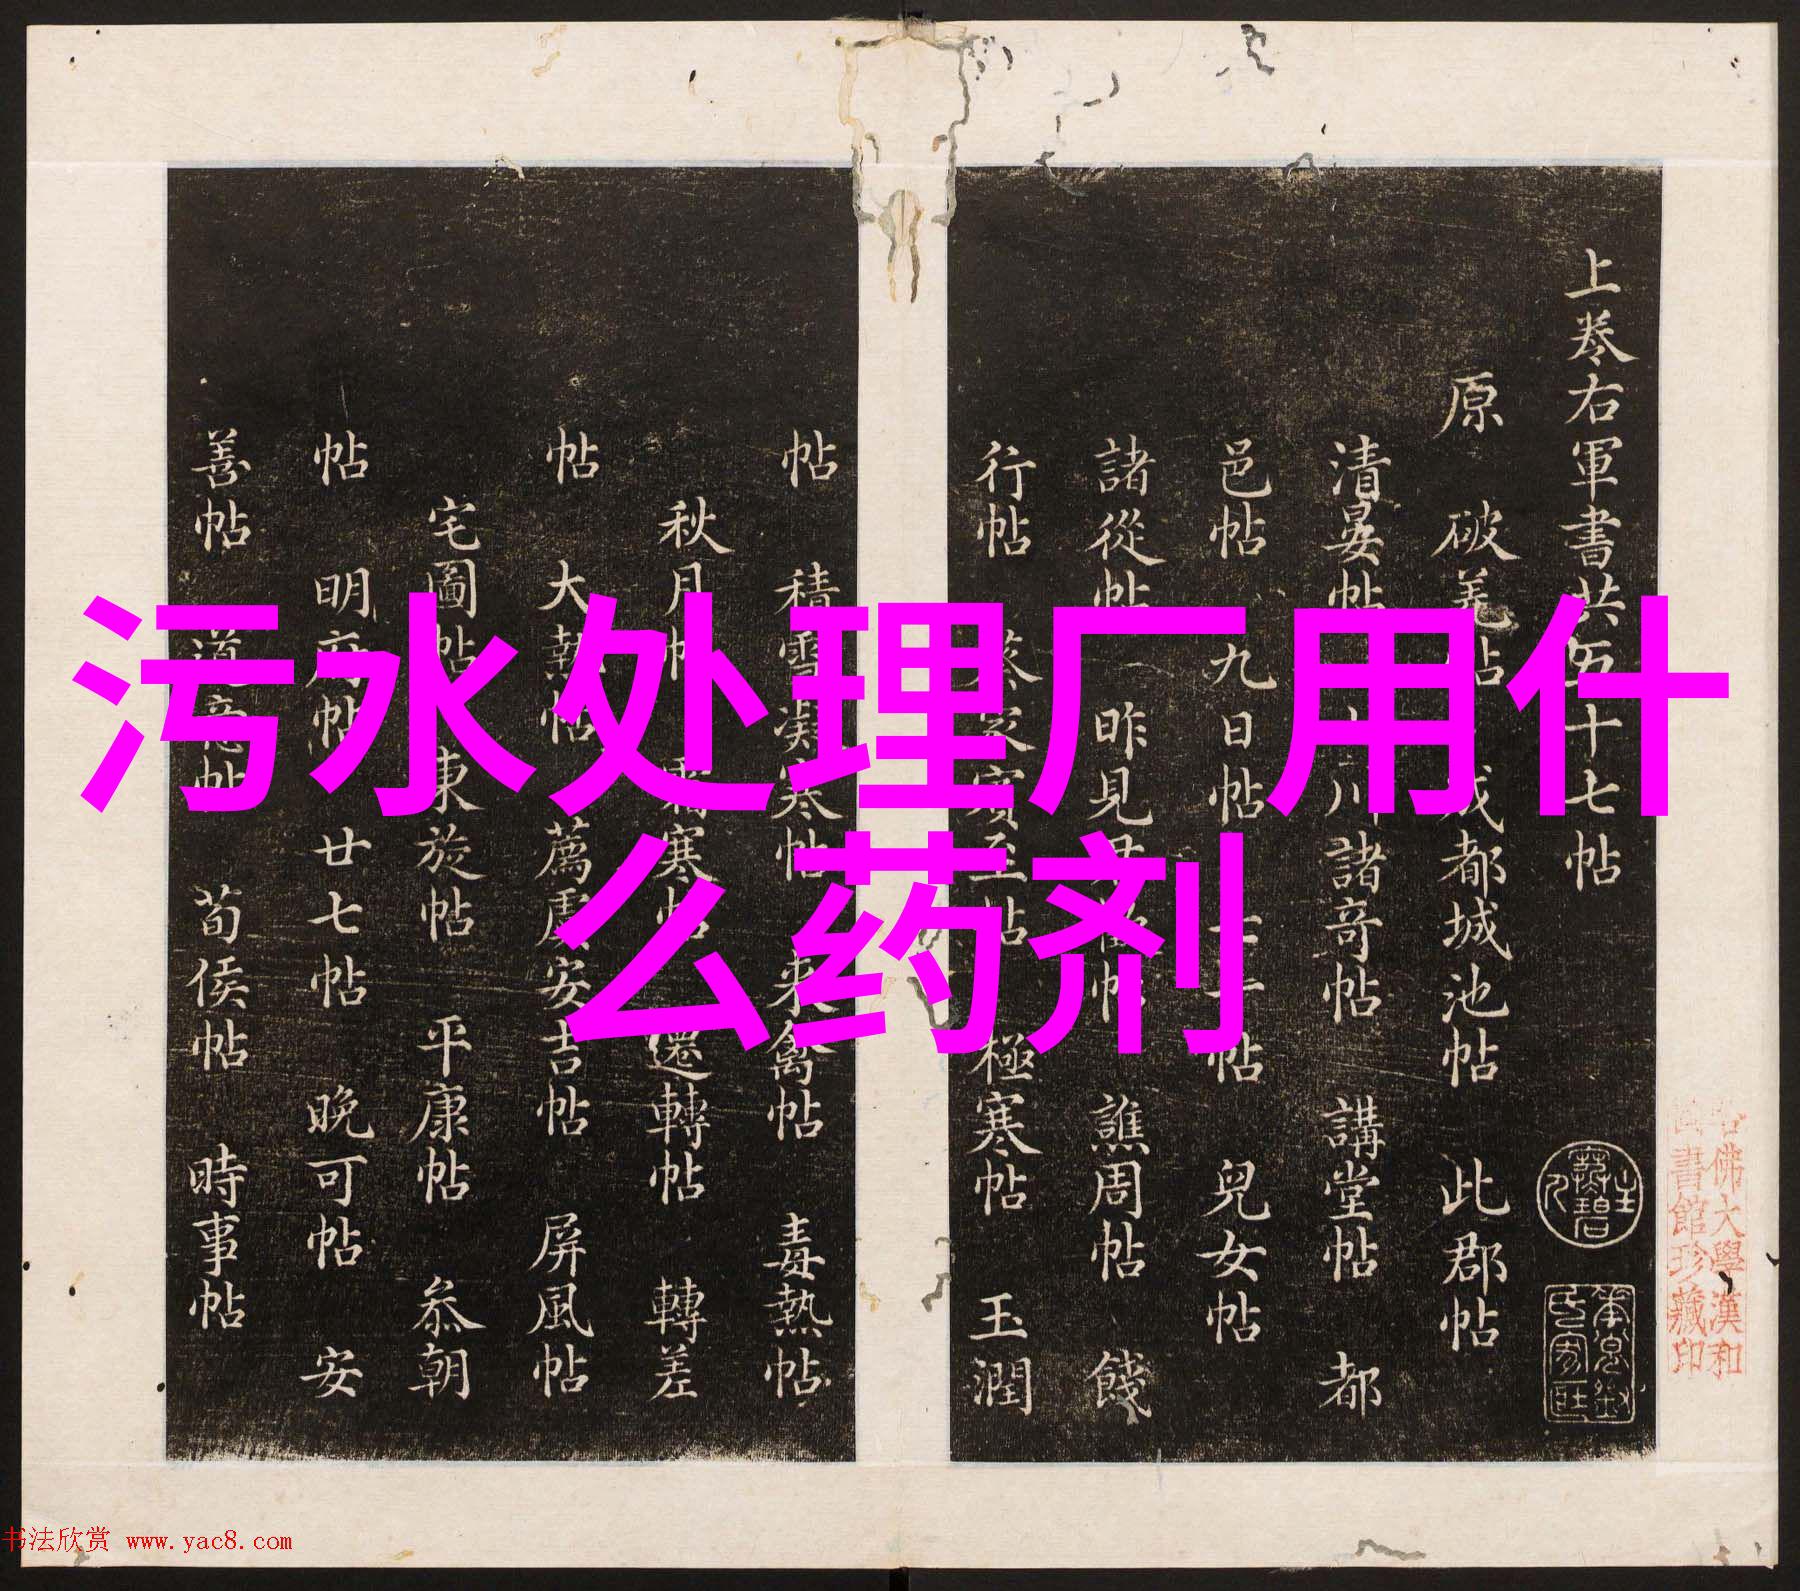 污水处理厂用什
么药剂
上卷右軍書共五十七帖
原 破羌帖 成都城池帖 此郡帖
清晏帖 山川諸奇帖 講堂帖 都
邑帖 九日帖 七十帖 兒女帖
諸從帖 昨見 帖 譙周帖 餞
行帖 蔡家賓至帖 極寒帖 玉潤
帖 積雪凝寒帖 来禽帖 毒熱帖
秋月帖 寒帖 還轉帖 轉差
帖 大熱帖 薦虞安吉帖 屏風帖
宅圖帖 東旋帖 平康帖 叅朝
帖 明府帖 廿七帖 晚可帖 安
善帖 道意帖 荀侯帖 時事帖
佛大學漢和
書館珍藏印
书法欣赏 www.yac8.com